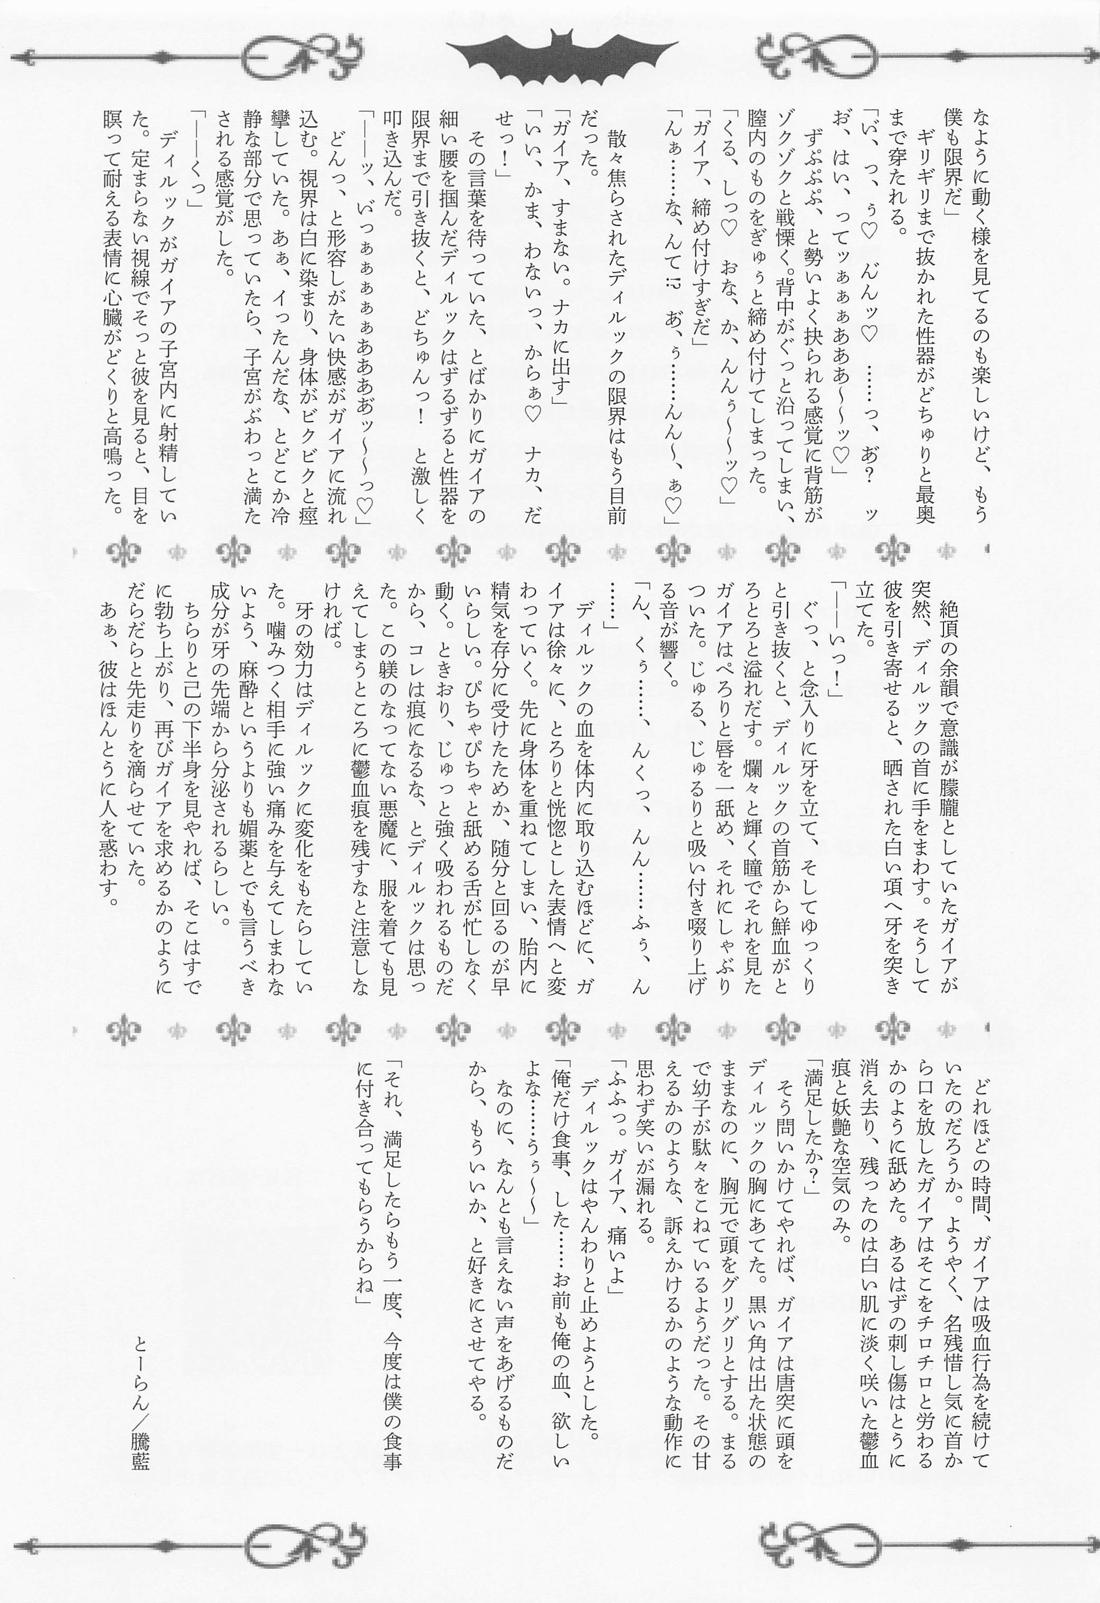 なように動く様を見てるのも楽しいけど、もう
僕も限界だ」
ギリギリまで抜かれた性器がどちゅりと最奥
まで穿たれる。
「い゛、っ、ぅ♡　ん゛んッ♡　……っ、お゛？　ッ
お、はい、ってッぁぁぁあああ〜〜ッ♡」
ずぷぷぷ、と勢いよく抉られる感覚に背筋が
ゾクゾクと戦慄く。背中がぐっと沿ってしまい、
膣内のものをぎゅぅと締め付けてしまった。
「くる、しっ♡　おな、か、んんぅ〜〜ッ♡」
「ガイア、締め付けすぎだ」
「んぁ……な、んて⁉　あ゛、ぅ……んん〜、ぁ♡」
散々焦らされたディルックの限界はもう目前
だった。
「ガイア、すまない。ナカに出す」
「いい、かま、わないっ、からぁ♡　ナカ、だ
せっ！」
その言葉を待っていた、とばかりにガイアの
細い腰を掴んだディルックはずるずると性器を
限界まで引き抜くと、どちゅんっ！　と激しく
叩き込んだ。
「――ッ、い゛っぁぁぁぁぁああああ゛ッ〜〜っ♡」
どんっ、と形容しがたい快感がガイアに流れ
込む。視界は白に染まり、身体がビクビクと痙
攣していた。あぁ、イったんだな、とどこか冷
静な部分で思っていたら、子宮がぶわっと満た
される感覚がした。
「――くっ」
ディルックがガイアの子宮内に射精してい
た。定まらない視線でそっと彼を見ると、目を
瞑って耐える表情に心臓がどくりと高鳴った。
絶頂の余韻で意識が朦朧としていたガイアが
突然、ディルックの首に手をまわす。そうして
彼を引き寄せると、晒された白い項へ牙を突き
立てた。
「――いっ！」
ぐっ、と念入りに牙を立て、そしてゆっくり
と引き抜くと、ディルックの首筋から鮮血がと
ろとろと溢れだす。爛々と輝く瞳でそれを見た
ガイアはぺろりと唇を一舐め、それにしゃぶり
ついた。じゅる、じゅるりと吸い付き啜り上げ
る音が響く。
「ん、くぅ……、んくっ、んん……ふぅ、ん
……」
ディルックの血を体内に取り込むほどに、ガ
イアは徐々に、とろりと恍惚とした表情へと変
わっていく。先に身体を重ねてしまい、胎内に
精気を存分に受けたためか、随分と回るのが早
いらしい。ぴちゃぴちゃと舐める舌が忙しなく
動く。ときおり、じゅっと強く吸われるものだ
から、コレは痕になるな、とディルックは思っ
た。この躾のなってない悪魔に、服を着ても見
えてしまうところに鬱血痕を残すなと注意しな
ければ。
牙の効力はディルックに変化をもたらしてい
た。噛みつく相手に強い痛みを与えてしまわな
いよう、麻酔というよりも媚薬とでも言うべき
成分が牙の先端から分泌されるらしい。
ちらりと己の下半身を見やれば、そこはすで
に勃ち上がり、再びガイアを求めるかのように
だらだらと先走りを滴らせていた。
あぁ、彼はほんとうに人を惑わす。
どれほどの時間、ガイアは吸血行為を続けて
いたのだろうか。ようやく、名残惜し気に首か
ら口を放したガイアはそこをチロチロと労わる
かのように舐めた。あるはずの刺し傷はとうに
消え去り、残ったのは白い肌に淡く咲いた鬱血
痕と妖艶な空気のみ。
「満足したか？」
そう問いかけてやれば、ガイアは唐突に頭を
ディルックの胸にあてた。黒い角は出た状態の
ままなのに、胸元で頭をグリグリとする。まる
で幼子が駄々をこねているようだった。その甘
えるかのような、訴えかけるかのような動作に
思わず笑いが漏れる。
「ふふっ。ガイア、痛いよ」
ディルックはやんわりと止めようとした。
「俺だけ食事、した……お前も俺の血、欲しい
よな……うぅ〜〜」
なのに、なんとも言えない声をあげるものだ
から、もういいか、と好きにさせてやる。
「それ、満足したらもう一度、今度は僕の食事
に付き合ってもらうからね」
とーらん／騰藍